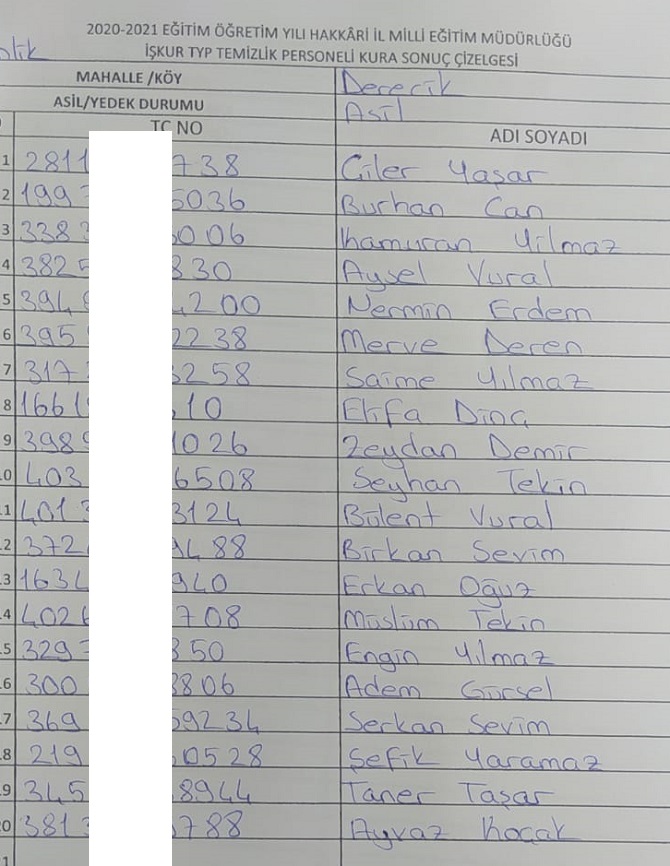 2020-2021 EĞİTİM ÖĞRETİM YILI HAKKÂRİ İL MİLLİ EĞİTİM MÜDÜRLÜĞÜ
İŞKUR TYP TEMİZLİK PERSONELİ KURA SONUÇ ÇİZELGESİ
MAHALLE /KÖY Derecik
ASİL/YEDEK DURUMU Asil
TC NO ADI SOYADI
1 2811 738 Ciler Yaşar
2 199 5036 Burhan Can
3 338 006 Kamuran Yilmaz
4 382 830 Aysel Vural
5 394 200 Nermin Erdem
6 395 2238 Merve Deren
7 317 3258 Saime Yılmaz
8 1661 10 Elifa Dinç
9 398 1026 Zeydan Demir
0 403 6508 Seyhan Tekin
1 401 3124 Bülent Vural
2 372 488 Birkan Sevim
3 163 940 Erkan Oğuz
4 402 708 Müslüm Tekin
5 329 350 Engin Yilmaz
6 300 3806 Adem Gürsel
7 369 59234 Serkan Sevim
8 219 0528 Şefik Yaramaz
9 345 8944 Taner Taşar
0 381 788 Ayvaz Koçak